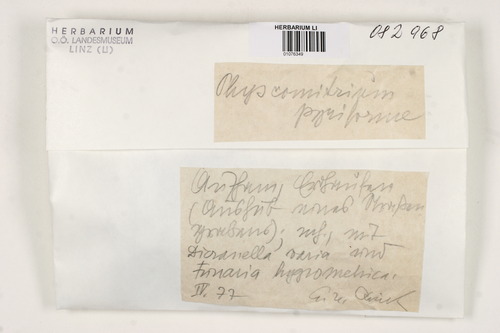 HERBARIUM
O.Ö. LANDESMUSEUM
LINZ (LI)
HERBARIUM LI
01076349
082968
Physcomitrium
pyriforme
Aufham, Erdhaufen
(Aushub neues Straßen
grabens); mit
Dicranella varia und
Funaria hygrometrica.
IV. 77